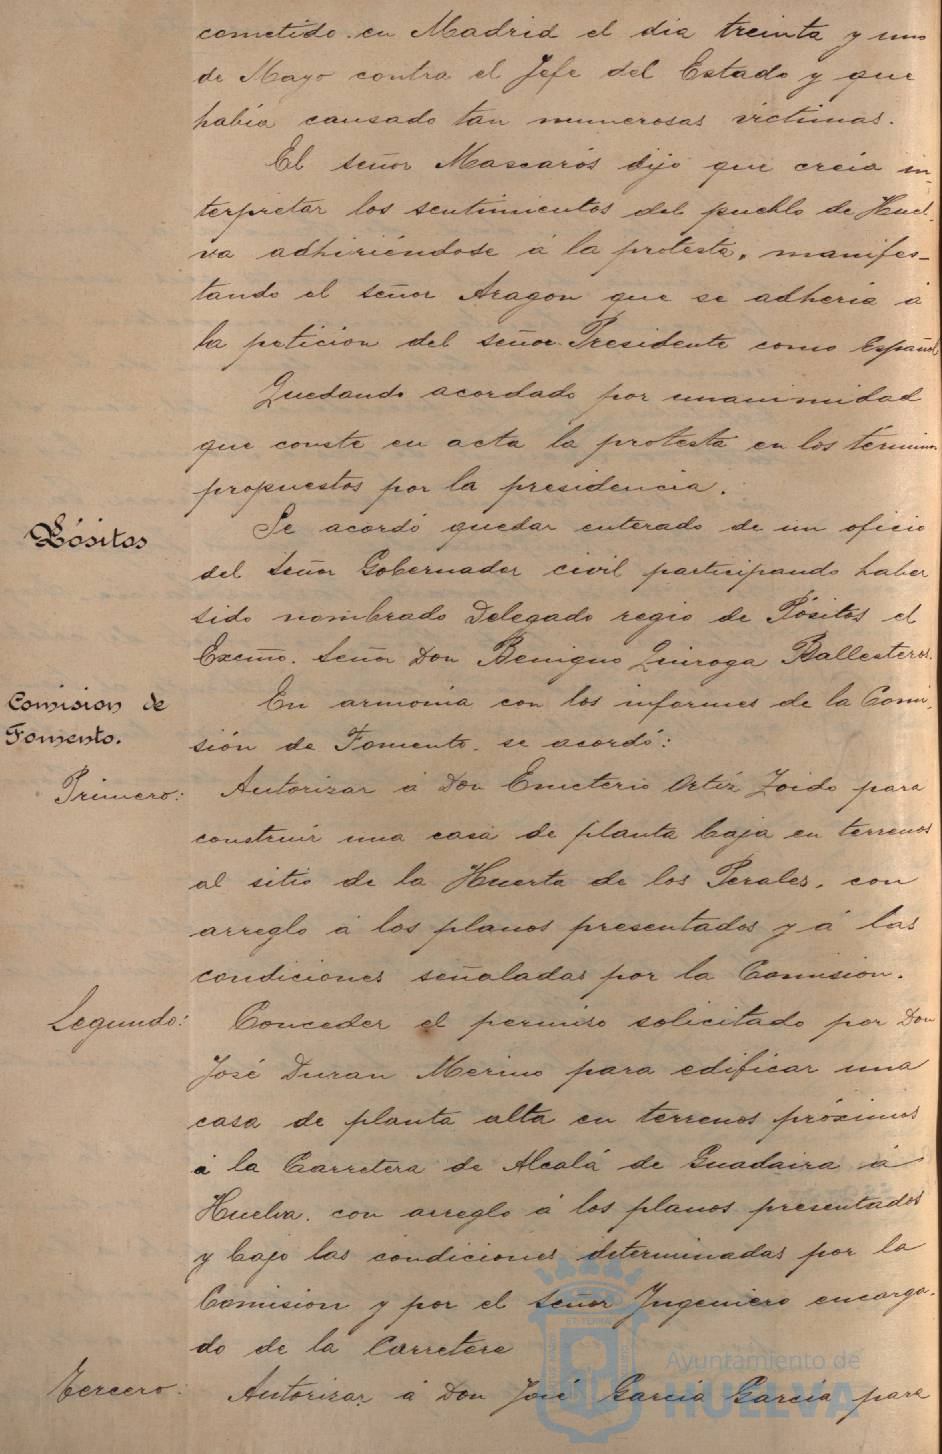 cometido en Madrid el dia treinta y uno
de Mayo contra el Jefe del Estado y que
había causado tan numerosas victimas.
El señor Mascarós dijo que creia in-
terpretar los sentimientos del pueblo de Huel-
va adhiriéndose á la protesta, manifes-
tando el señor Aragon que se adheria á
la peticion del señor Presidente como Español
Quedando acordado por unanimidad
que conste en acta la protesta en los términos
propuestos por la presidencia.
Pósitos
Se acordó quedar enterado de un oficio
del Señor Gobernador civil participando haber
sido nombrado Delegado regio de Pósitos el
Excmo. Señor Don Benigno Quiroga Ballesteros.
Comision de
Fomento.
En armonia con los informes de la Comi-
sión de Fomento se acordó:
Primero:
Autorizar á Don Emeterio Ortíz Zoido para
construir una casa de planta baja en terrenos
al sitio de la Huerta de los Perales, con
arreglo á los planos presentados y á las
condiciones señaladas por la Comision.
Segundo:
Conceder el permiso solicitado por Don
José Duran Merino para edificar una
casa de planta alta en terrenos próximos
á la Carretera de Alcalá de Guadaira á
Huelva. con arreglo á los planos presentados
y bajo las condiciones determinadas por la
Comision y por el Señor Ingeniero encarga-
do de la Carretera
Tercero:
Autorizar á Don José Garcia Garcia para
Ayuntamiento de
HUELVA